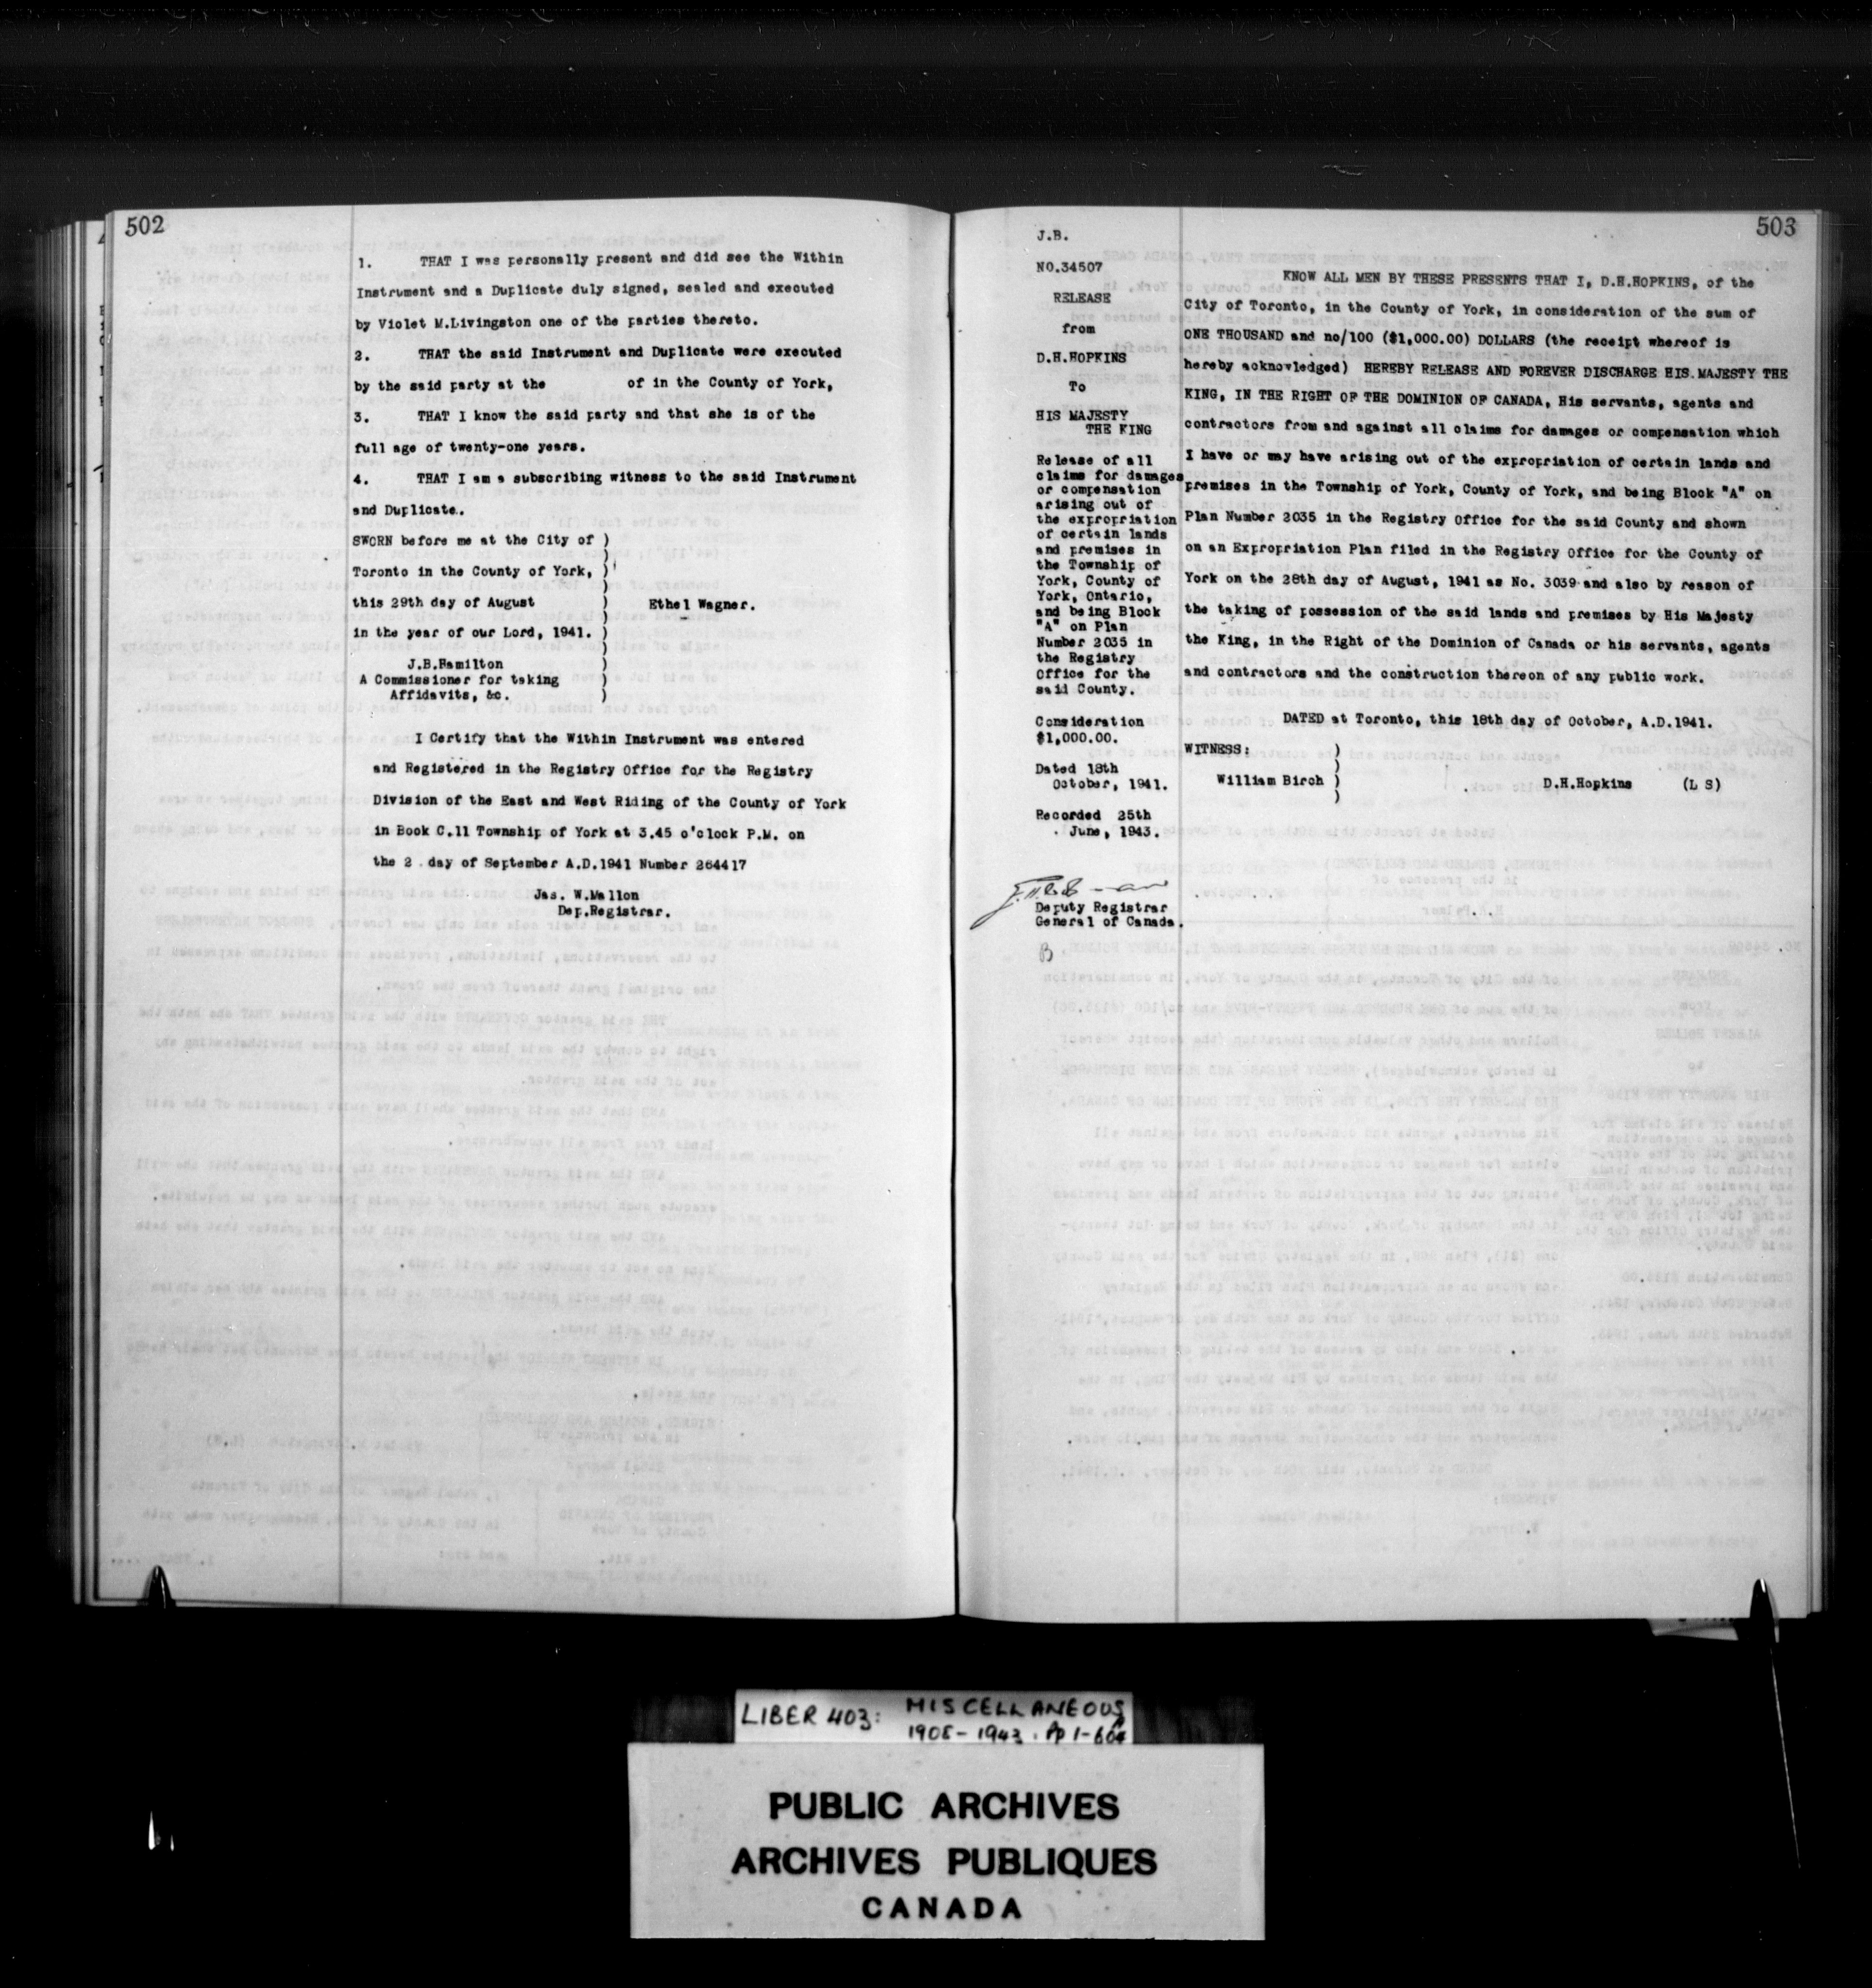 502
1. THAT I was personally present and did see the Within
Instrument and a Duplicate duly signed, sealed and executed
by Violet M.Livingston one of the parties thereto.
2. THAT the said Instrument and Duplicate were executed
by the said party at the of in the County of York,
3. THAT I know the said party and that she is of the
full age of twenty-one years.
4. THAT I am a subscribing witness to the said Instrument
and Duplicate.
SWORN before me at the City of )
Toronto in the County of York, )
this 29th day of August ) Ethel Wagner.
in the year of our Lord, 1941. )
J.B.Hamilton )
A Commissioner for taking )
Affidavits, &c. )
I Certify that the Within Instrument was entered
and Registered in the Registry Office for the Registry
Division of the East and West Riding of the County of York
in Book C.11 Township of York at 3.45 o'clock P.M. on
the 2 day of September A.D.1941 Number 264417
Jas. W.Mallon
Dep.Registrar.
503
J.B.
NO.34507
RELEASE
from
D.H.HOPKINS
To
HIS MAJESTY
THE KING
Release of all
claims for damages
or compensation
arising out of
the expropriation
of certain lands
and premises in
the Township of
York, County of
York, Ontario,
and being Block
"A" on Plan
Number 2035 in
the Registry
Office for the
said County.
Consideration
$1,000.00.
Dated 18th
October, 1941.
Recorded 25th
June, 1943.
Deputy Registrar
General of Canada.
B
KNOW ALL MEN BY THESE PRESENTS THAT I, D.H.HOPKINS, of the
City of Toronto, in the County of York, in consideration of the sum of
ONE THOUSAND and no/100 ($1,000.00) DOLLARS (the receipt whereof is
hereby acknowledged) HEREBY RELEASE AND FOREVER DISCHARGE HIS MAJESTY THE
KING, IN THE RIGHT OF THE DOMINION OF CANADA, His servants, agents and
contractors from and against all claims for damages or compensation which
I have or may have arising out of the expropriation of certain lands and
premises in the Township of York, County of York, and being Block "A" on
Plan Number 2035 in the Registry Office for the said County and shown
on an Expropriation Plan filed in the Registry Office for the County of
York on the 28th day of August, 1941 as No. 3039 and also by reason of
the taking of possession of the said lands and premises by His Majesty
the King, in the Right of the Dominion of Canada or his servants, agents
and contractors and the construction thereon of any public work.
DATED at Toronto, this 18th day of October, A.D.1941.
WITNESS: )
)
William Birch ) D.H.Hopkins (L S)
)
LIBER 403: MISCELLANEOUS
1908-1943. Pp 1-604
PUBLIC ARCHIVES
ARCHIVES PUBLIQUES
CANADA